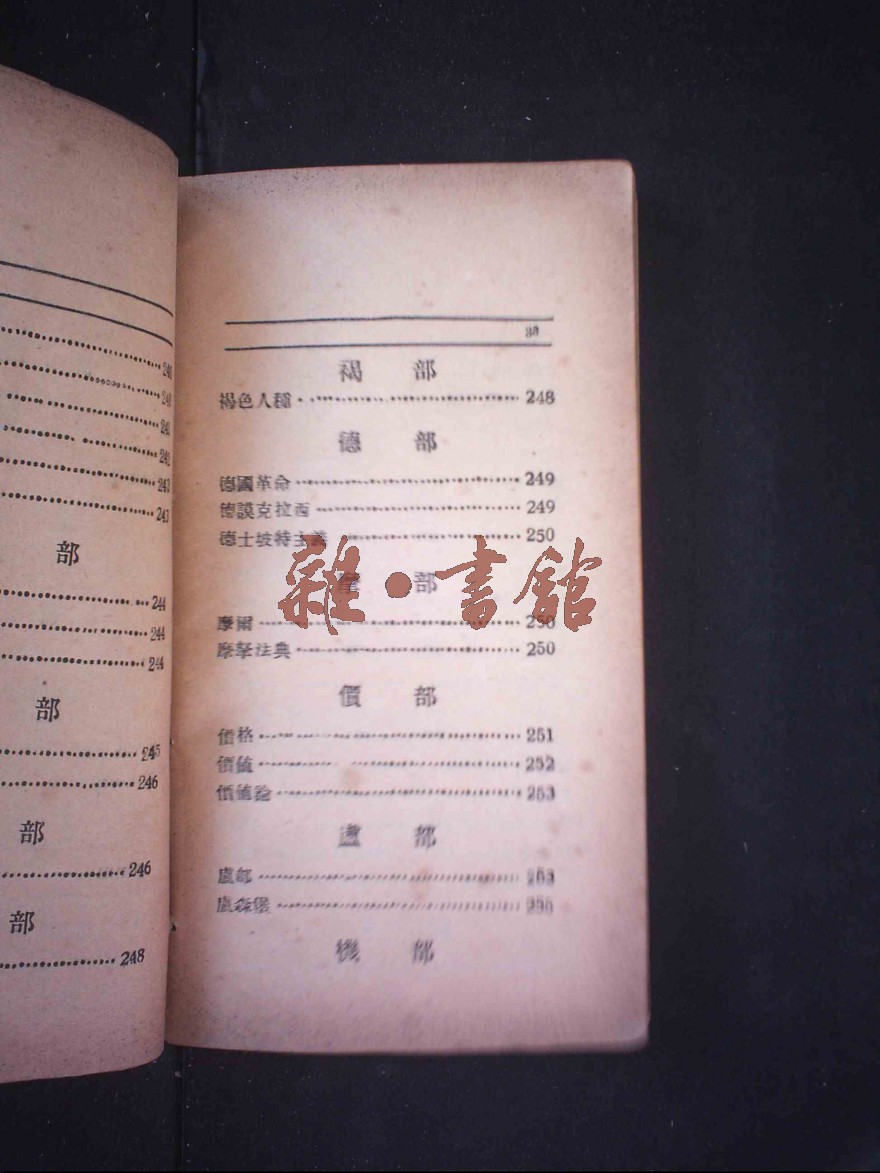 240
240
241
242
243
243
部
244
244
244
部
245
246
部
246
部
248
褐 部
褐色人種 248
德 部
德國革命 249
德謨克拉西 249
德士坡特主義 250
部
摩爾 250
摩拏法典 250
價 部
價格 251
價值 252
價值論 253
盧 部
盧郎 253
盧森堡
機 部
雜·書館